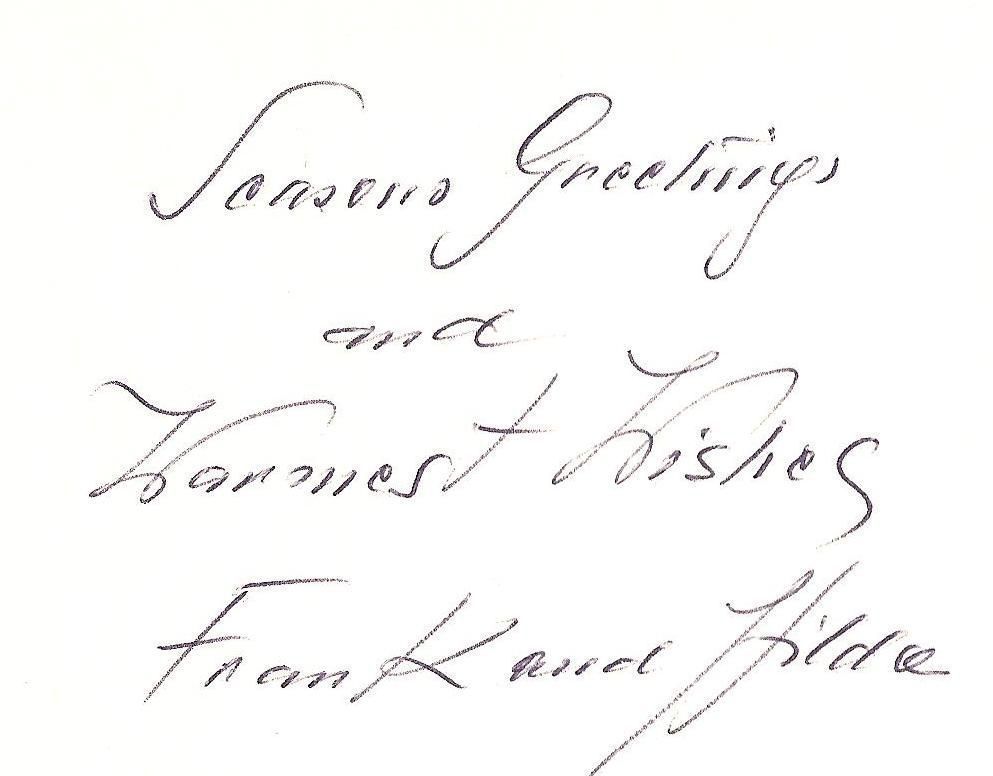 Seasons Greetings
and
Warmest Wishes
Frank and Hilda